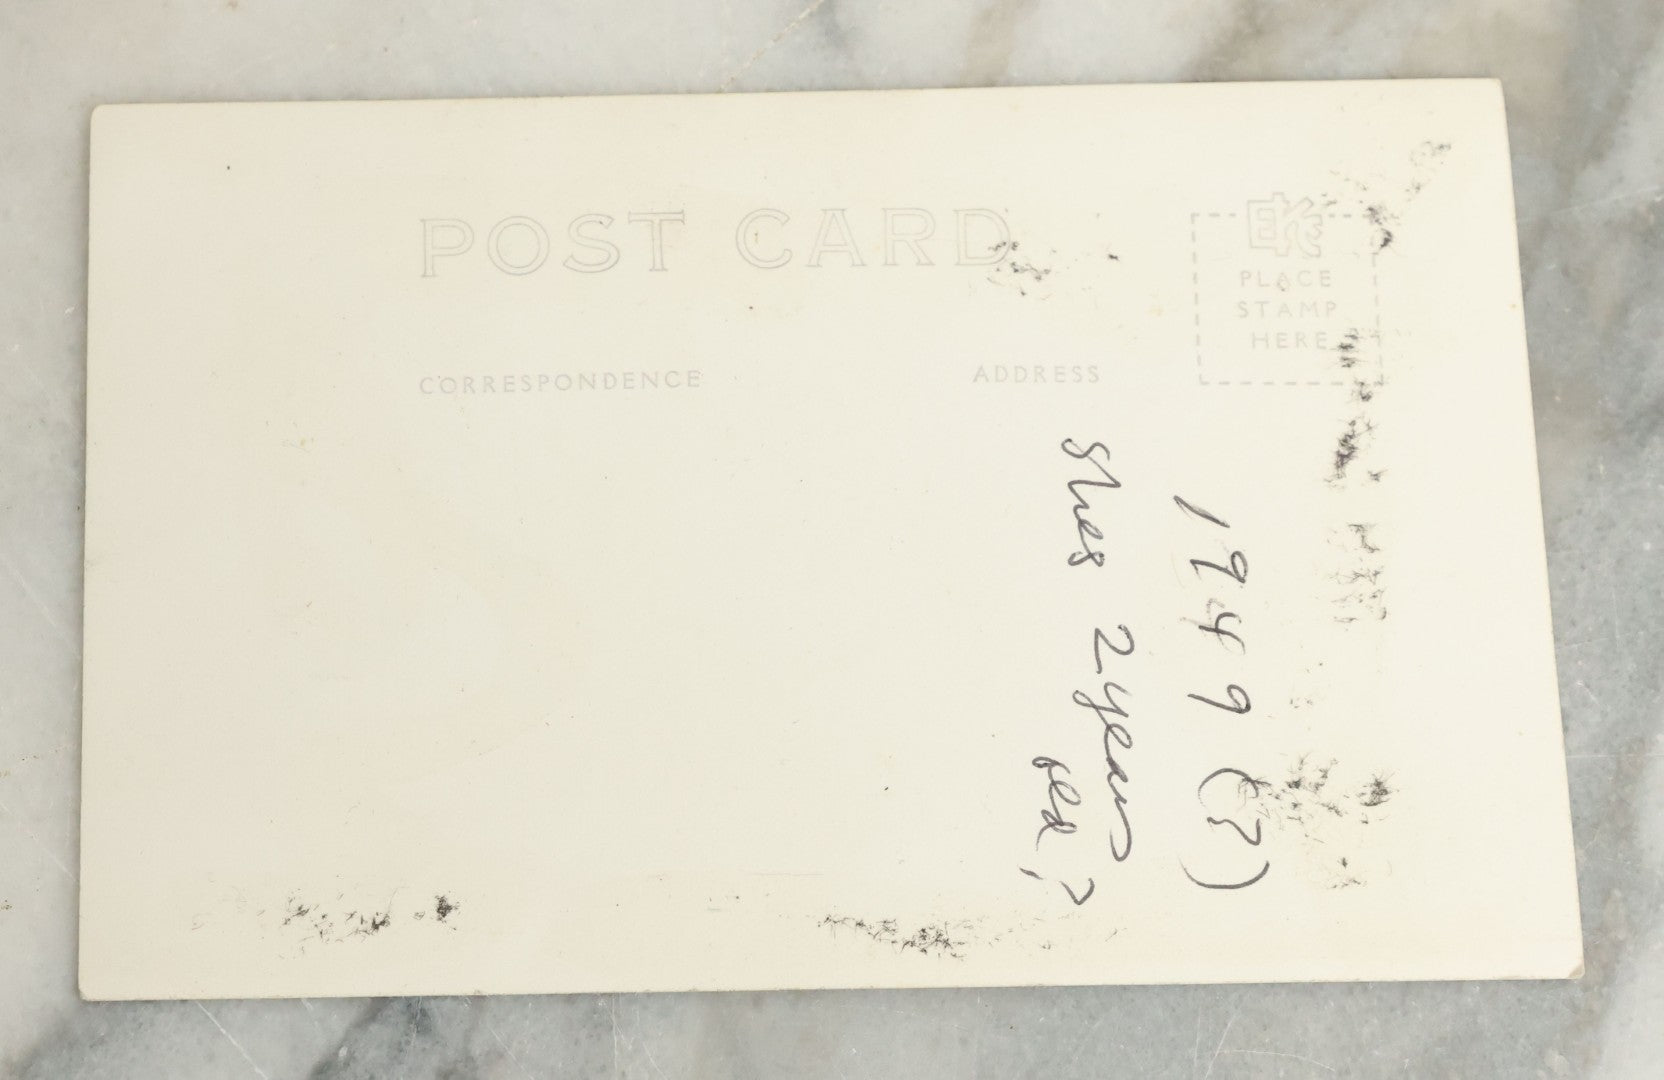 POST CARD
EKC
PLACE
STAMP
HERE
CORRESPONDENCE
ADDRESS
1949 (?)
Shes 2 years
old,?